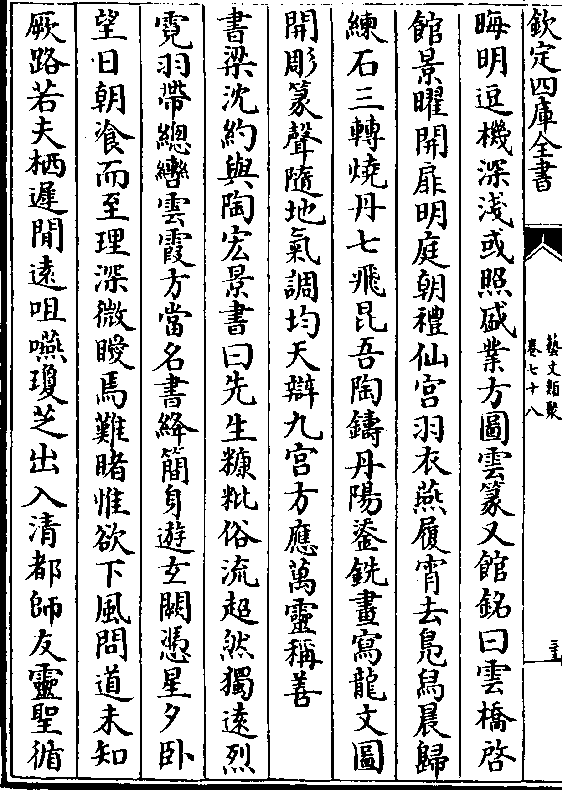 欽定四庫全書
藝文類聚
卷七十八
晦明逗機深淺或照盛業方圖雲篆又館銘曰雲橋啓
館景曜開扉明庭朝禮仙宮羽衣燕履宵去鳧舄晨歸
練石三轉燒丹七飛昆吾陶鑄丹陽鎣銑畫寫龍文圖
開彫篆聲隨地氣調均天辯九宮方應萬靈稱善
書梁沈約與陶宏景書曰先生糠粃俗流超然獨遠烈
霓羽帶總轡雲霞方當名書絳簡身遊玄闕憑星夕卧
望日朝飡而至理深微曖焉難睹惟欲下風問道未知
厥路若夫栖遲閒遠咀嚥瓊芝出入清都師友靈聖循